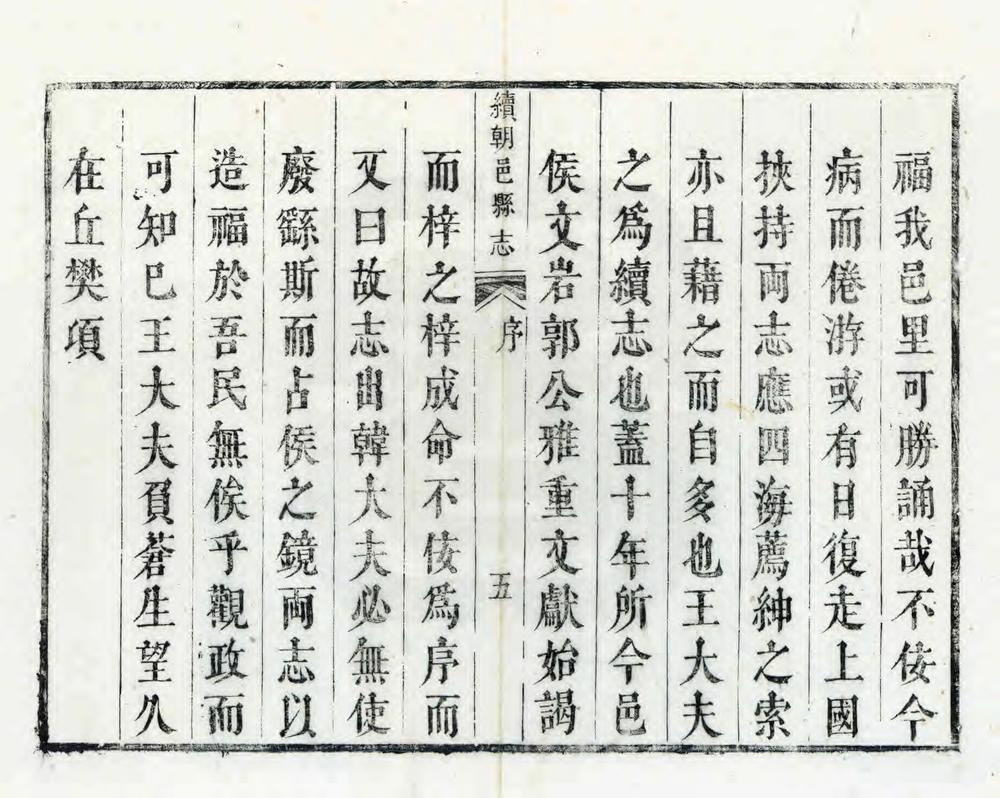 福我邑里可勝誦哉不佞今
病而倦游或有日復走上國
挾持両志應四海薦紳之索
亦且藉之而自多也王大夫
之爲續志也蓋十年所今邑
侯文岩郭公雅重文獻始謁
續朝邑縣志 序 五
而梓之梓成命不佞爲序而
又曰故志出韓大夫必無使
廢繇斯而占侯之鏡両志以
造福於吾民無俟乎觀政而
可知已王大夫負蒼生望久
在丘樊項